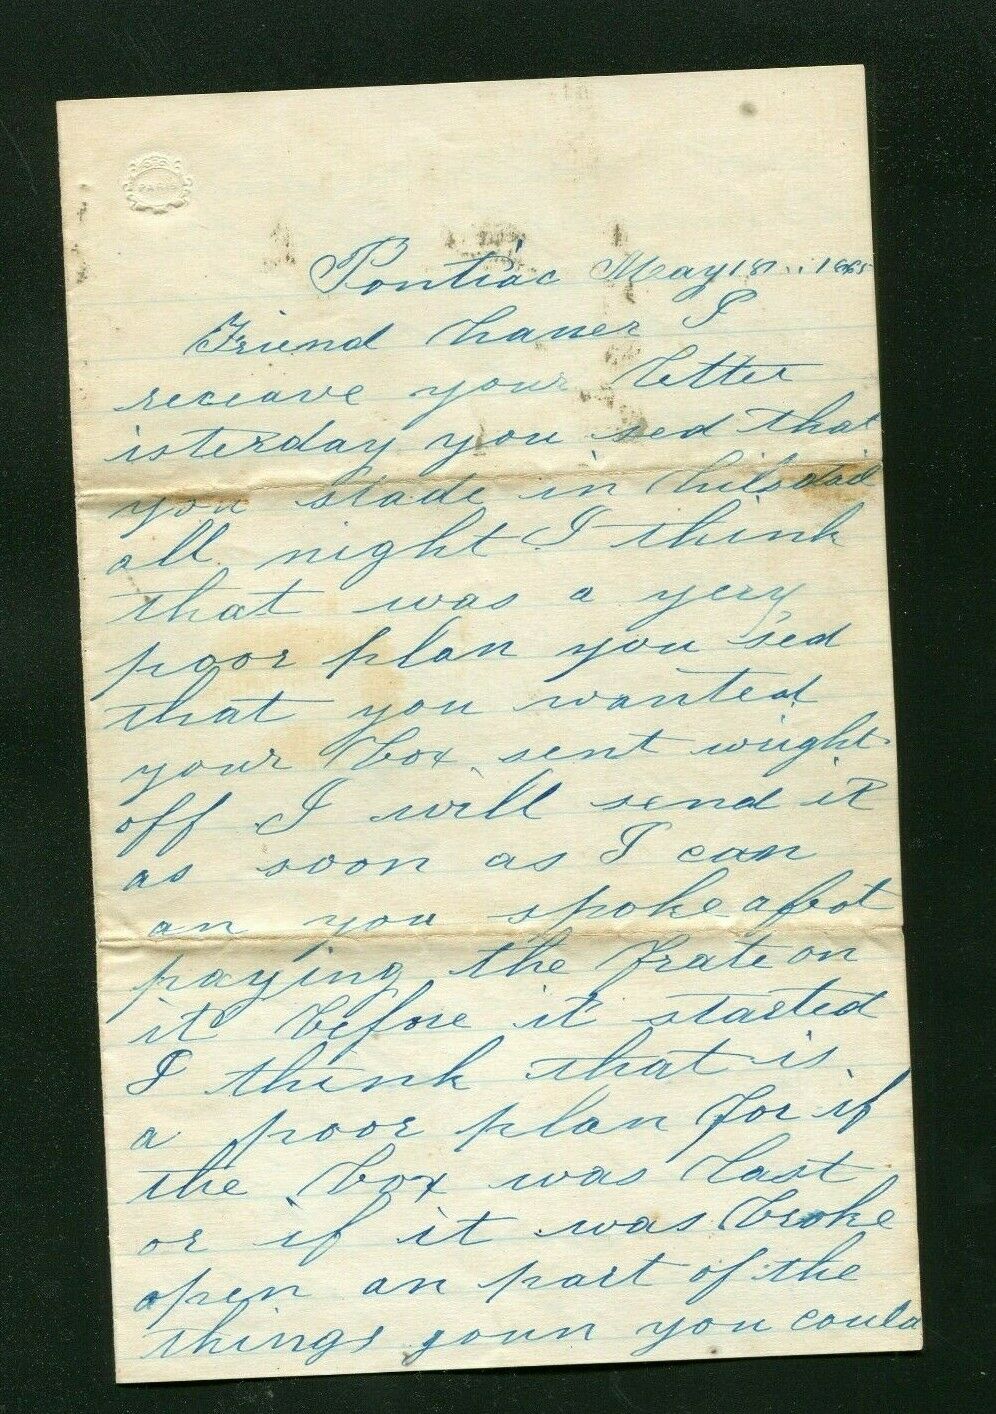 PARIS
Pontiac May 18.. 1865
Friend Laner I
receave your letter
isterday you sed that
you stade in hilsdail
all night I think
that was a yery
poor plan you sed
that you wanted
your box sent wright
off I will send it
as soon as I can
an you spoke afbot
paying the frate on
it before it started
I think that is
a poor plan for if
the box was last
or if it was broke
open an part of the
things goun you could